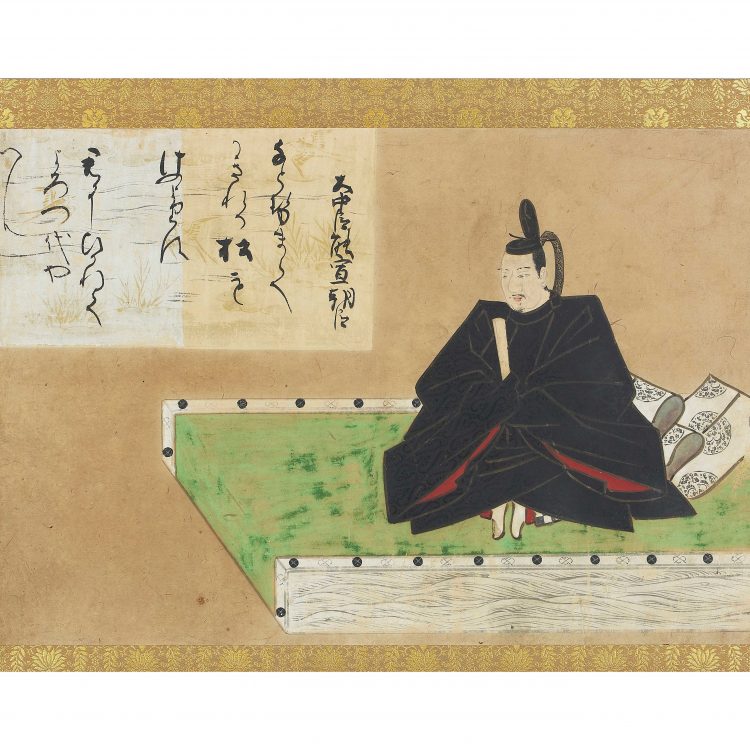 大中臣能宣朝臣
ちとせまて
かきれる松も
けふよりは
きみにひかれて
よろつ代や
へむ